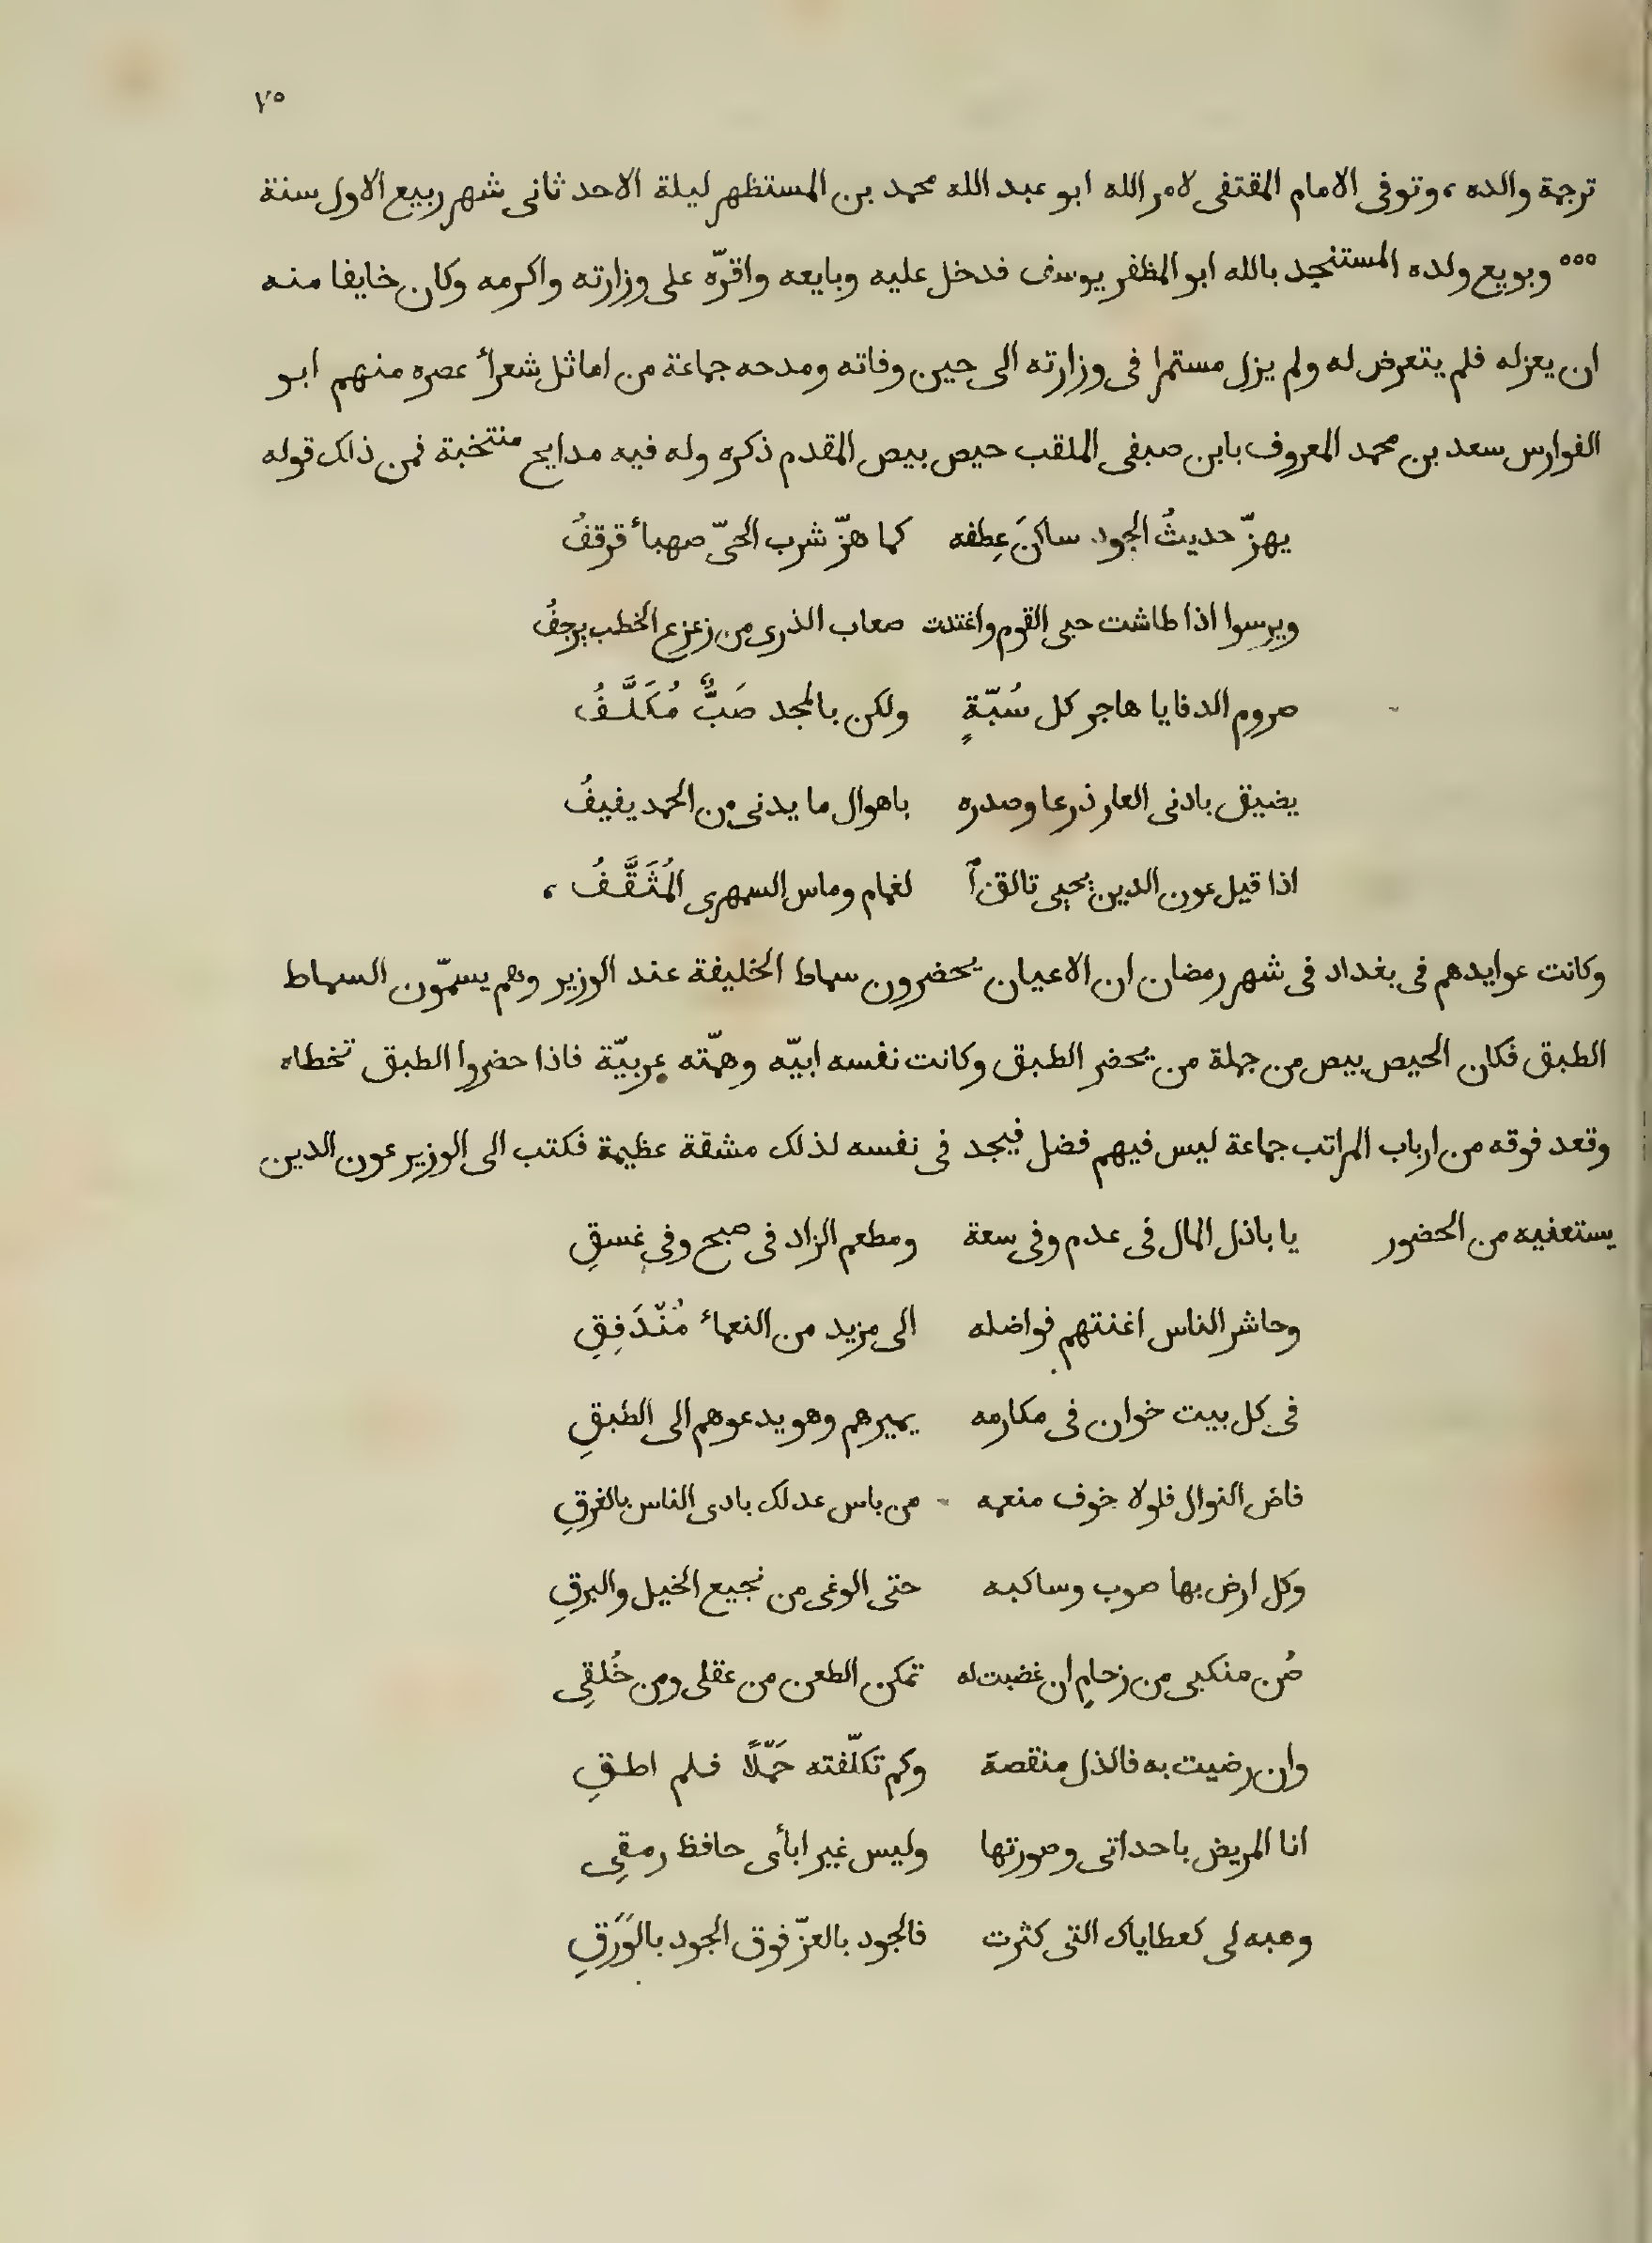 ٧٥
ترجمة والده، وتوفى الامام المقتفى لامر الله ابو عبد الله محمد بن المستظهر ليلة الاحد ثانى شهر ربيع الاول سنة
٥٥٥ وبويع ولده المستنجد بالله ابو المظفر يوسف فدخل عليه وبايعه واقرّه على وزارته واكرمه وكان خايفا منه
ان يعزله فلم يتعرض له ولم يزل مستمرا فى وزارته الى حين وفاته ومدحه جماعة من اماثل شعرأ عصره منهم ابو
الفوارس سعد بن محمد المعروف بابن صيفى الملقب حيص بيص المقدم ذكره وله فيه مدايح منتخبة فمن ذلك قوله
يهزّ حديثُ الجود ساكنَ عِطفه كما هزّ شرب الحىّ صهبأ قرقفُ
ويرسوا اذا طاشت حبى القوم واغتدت صعاب الذرى من زعزع الخطب يرجفُ
صروم الدفايا هاجر كل سُبّةٍ ولكن بالمجد صَبٌّ مُكَلَّفُ
يضيق بادنى العار ذرعا وصدره باهوال ما يدنى من الحمد يفيفُ
اذا قيل عون الدين يحيى تالق ٱ لغمام وماس السمهرى المُثَقَّفُ ،
وكانت عوايدهم فى بغداد فى شهر رمضان ان الاعيان يحضرون سماط الخليفة عند الوزير وهم يسمّون السماط
الطبق فكان الحيص بيص من جملة من يحضر الطبق وكانت نفسه ابيّه وهمّته عربيّة فاذا حضروا الطبق تخطاه
وقعد فوقه من ارباب المراتب جماعة ليس فيهم فضل فيجد فى نفسه لذلك مشقة عظيمة فكتب الى الوزير عون الدين
يستعفيه من الحضور يا باذل المال فى عدم وفى سعة ومطعم الزاد فى صبح وفى غسقِ
وحاشر الناس اغنتهم فواضله الى مزيد من النعمأ مُنْدَفِقِ
فى كل بيت خوان فى مكارمه يميرهم وهو يدعوهم الى الطبقِ
فاض النوال فلولا خوف منعمه من باس عدلك بادى الناس بالغرقِ
وكل ارض بها صوب وساكبه حتى الوغى من نجيع الخيل والبرقِ
صُن منكبى من زحام ان غضبت له تمكن الطعن من عقلى ومن خُلقِى
وان رضيت به فالذل منقصة وكم تكلّفته حَمّلًا فلم اطقِ
انا المريض باحداثى وصورتها وليس غير ابأى حافظ رمقِى
وهبه لى كعطاياك التى كثرت فالجود بالعزّ فوق الجود بالوَرَقِ